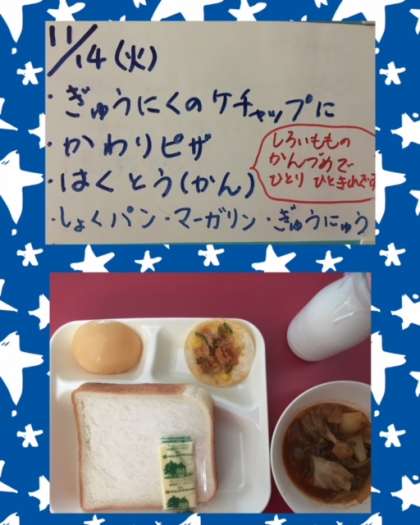 11/14(火)
・ぎゅうにくのケチャップに
・かわりピザ
・はくとう(かん)
しろいももの
かんづめで
ひとり ひときれです
・しょくパン・マーガリン・ぎゅうにゅう